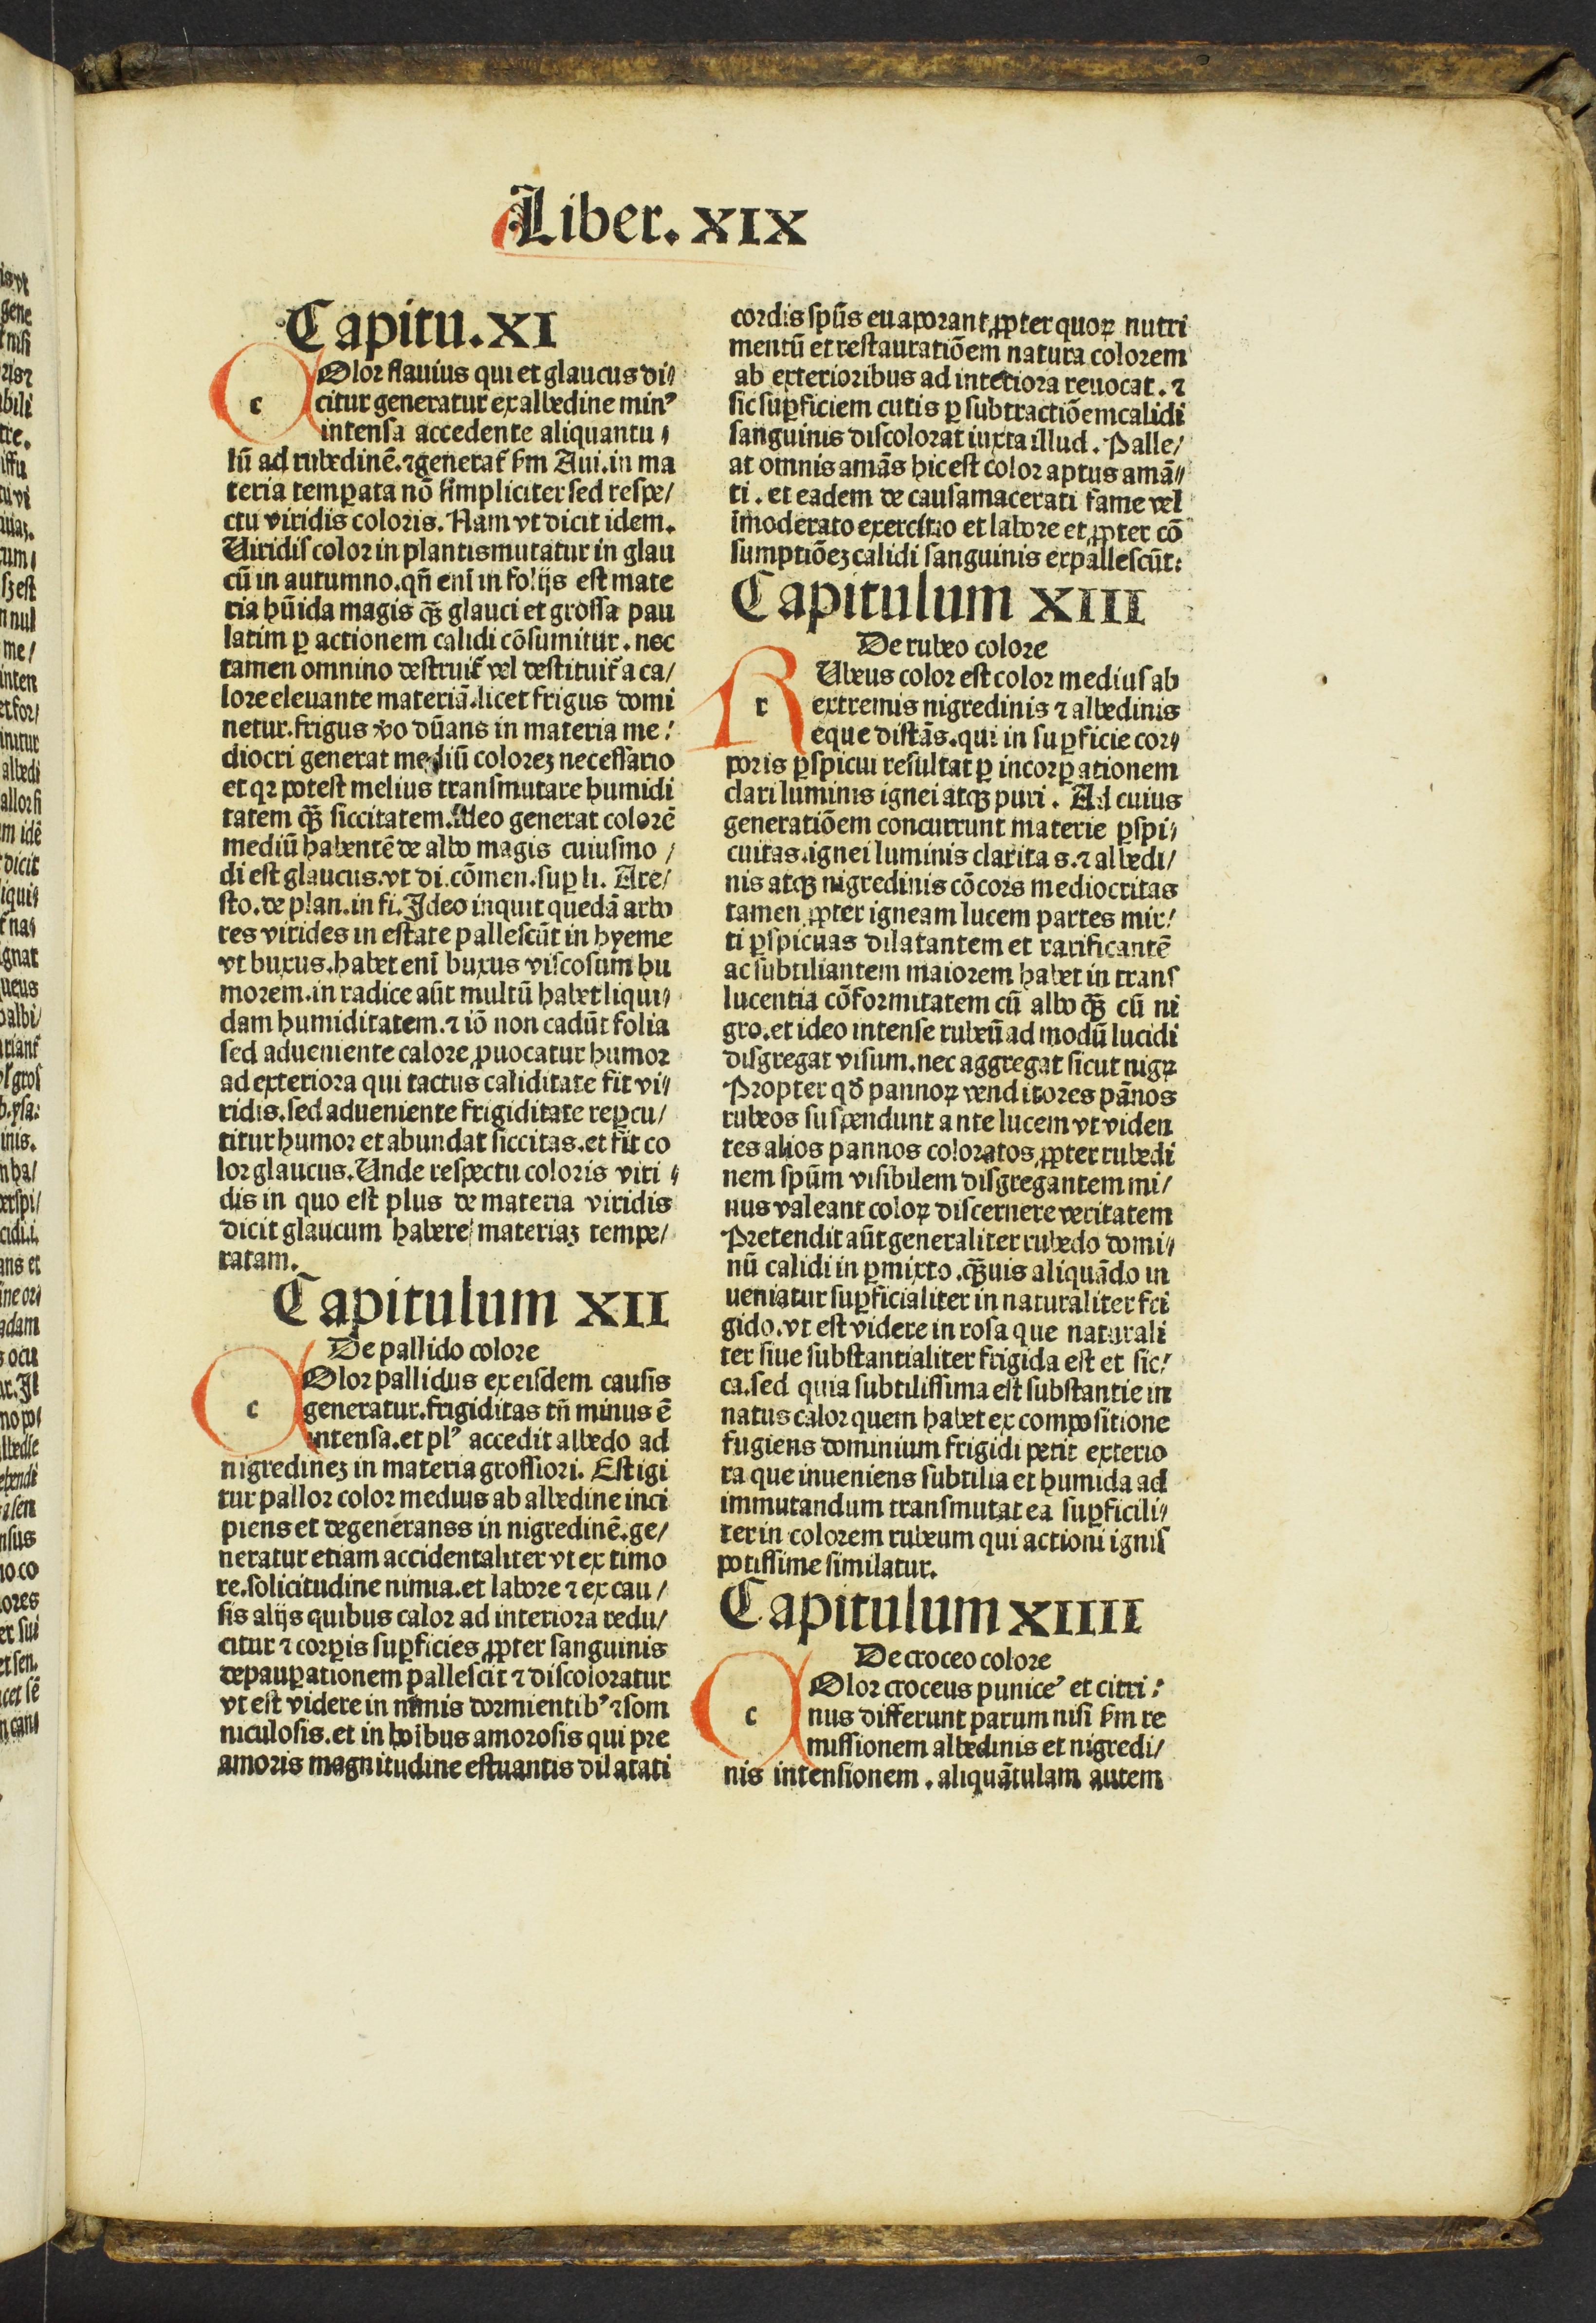 Liber. XIX
Capitu. XI
cOlor flauius qui et glaucus di⸗
citur generatur ex albedine minꝰ
intensa accedente aliquantu⸗
lū ad rubedinē. ⁊ generat᷑ ẜm Aui. in ma
teria temꝑata nō simpliciter sed respe/
ctu viridis coloris. Nam vt dicit idem.
Uiridis color in plantis mutatur in glau
cū in autumno. qn̄ enī in folijs est mate
ria hūida magis ꝙ̄ glauci et grossa pau
latim ꝑ actionem calidi cōsumitur. nec
tamen omnino destruit᷑ vel destituit᷑ a ca/
lore eleuante materiā. licet frigus domi
netur. frigus v̄o dūans in materia me⸗
diocri generat mediū coloreꝫ necessario
et qꝛ potest melius transmutare humidi
tatem ꝙ̄ siccitatem. Ideo generat colorē
mediū habentē de albo magis cuiusmo/
di est glaucus. vt di. cōmen. suꝑ li. Are/
sto. de plan. in fi. Ideo inquit quedā arbo
res virides in estate pallescūt in hyeme
vt buxus. habet enī buxus viscosum hu
morem. in radice aūt multū habet liqui⸗
dam humiditatem. ⁊ iō non cadūt folia
sed adueniente calore ꝓuocatur humor
ad exteriora qui tactus caliditate fit vi⸗
ridis. sed adueniente frigiditate reꝑcu/
titur humor et abundat siccitas. et fit co
lor glaucus. Unde respectu coloris viri⸗
dis in quo est plus de materia viridis
dicit glaucum habere materiaꝫ tempe/
ratam.
Capitulum XII
De pallido colore
cOlor pallidus ex eisdem causis
generatur. frigiditas tn̄ minus ē
intensa. et plꝰ accedit albedo ad
nigredineꝫ in materia grossiori. Est igi
tur pallor color medius ab albedine inci
piens et degeneranss in nigredinē. ge/
neratur etiam accidentaliter vt ex timo
re. solicitudine nimia. et labore ⁊ ex cau/
sis alijs quibus calor ad interiora redu/
citur ⁊ corꝑis suꝑficies ꝓpter sanguinis
depauꝑationem pallescit ⁊ discoloratur
vt est videre in nimis dormientibꝰ ⁊ som
niculosis. et in hoībus amorosis qui pre
amoris magnitudine estuantis dilatati
cordis spūs euaporant ꝓpter quoꝝ nutri
mentū et restauratiōem natura colorem
ab exterioribus ad interiora reuocat. ⁊
sic suꝑficiem cutis ꝑ subtractiōem calidi
sanguinis discolorat iuxta illud. Palle/
at omnis amās hic est color aptus amā⸗
ti. et eadem de causa macerati fame vel
īmoderato exercitio et labore et ꝓpter cō
sumptiōeꝫ calidi sanguinis expallescūt:
Capitulum XIII
De rubeo colore
rUbeus color est color medius ab
extremis nigredinis ⁊ albedinis
eque distās. qui in suꝑficie cor⸗
poris ꝑspicui resultat ꝑ incorꝑationem
clari luminis ignei atqꝫ puri. Ad cuius
generatiōem concurrunt materie ꝑspi⸗
cuitas. ignei luminis claritas. ⁊ albedi/
nis atqꝫ nigredinis cōcors mediocritas
tamen ꝓpter igneam lucem partes mix⸗
ti ꝑspicuas dilatantem et rarificantē
ac subtiliantem maiorem habet in trans
lucentia cōformitatem cū albo ꝙ̄ cū ni
gro. et ideo intense rubeū ad modū lucidi
disgregat visum. nec aggregat sicut nigꝝ
Propter qð pannoꝝ venditores pānos
rubeos suspendunt ante lucem vt viden
tes alios pannos coloratos ꝓpter rubedi
nem spūm visibilem disgregantem mi/
nus valeant coloꝝ discernere veritatem
Pretendit aūt generaliter rubedo domi⸗
nū calidi in ꝑmixto. ꝙ̄uis aliquādo in
ueniatur suꝑficialiter in naturaliter fri
gido. vt est videre in rosa que naturali
ter siue substantialiter frigida est et sic⸗
ca. sed quia subtilissima est substantie in
natus calor quem habet ex compositione
fugiens dominium frigidi petit exterio
ra que inueniens subtilia et humida ad
immutandum transmutat ea suꝑficili⸗
ter in colorem rubeum qui actioni ignis
potissime similatur.
Capitulum XIIII
De croceo colore
cOlor croceus puniceꝰ et citri⸗
nus differunt parum nisi ẜm re
missionem albedinis et nigredi/
nis intensionem. aliquātulam autem